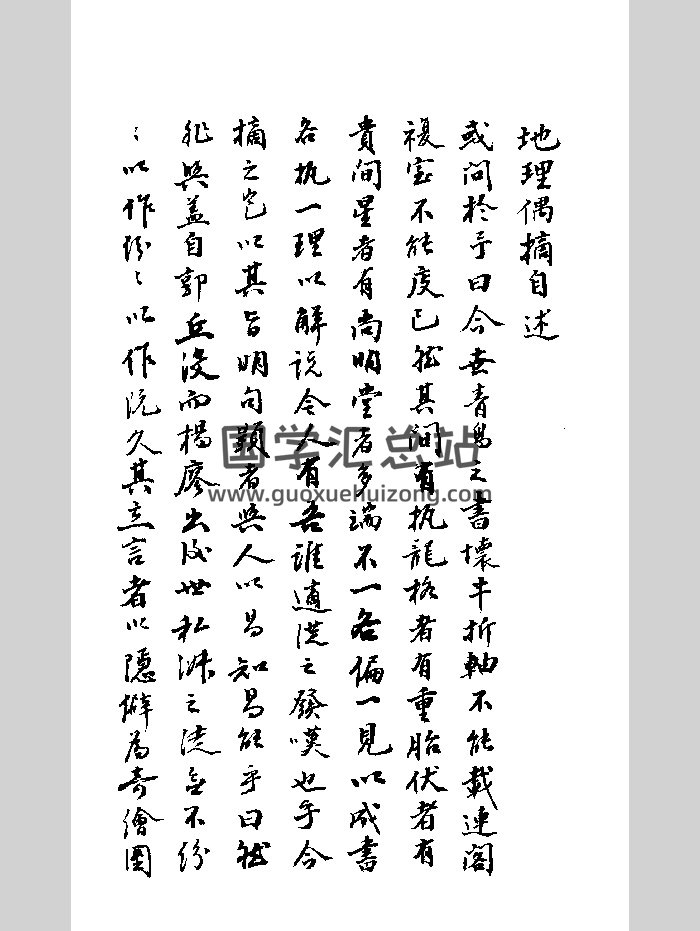 地理偶摘自述
或問於予曰今世青烏之書壞牛折軸不能載連閣
複室不能度已然其間有执龍格者有重胎伏者有
貴間星者有尚明堂者多端不一各偏一見以成書
各执一理以解说令人有吾谁適從之發嘆也乎今
摘之也以其旨明句顯者與人以易知易能乎曰然
非與蓋自郭丘沒而楊廖出後世私淑之徒無不紛
〻以作紛〻以作既久其立言者以隱僻為奇繪圖
国学汇总站
www.guoxuehuizong.com